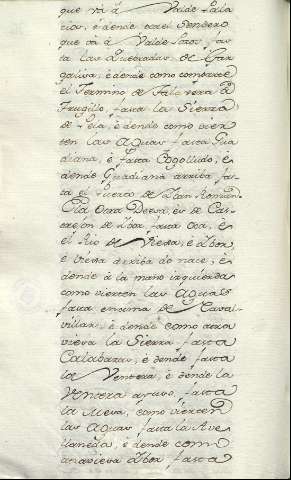 que vá á Valde Pala-
cios, é dende por el Sendero
que vá á Valde Loro, fas-
ta las Quebradas de Gar-
galiva, é dende como combrece
el Termino de Talavera, é
Trugillo, fasta la Sierra
de Leia, é dende como vier-
ten las Aguas fasta Gua-
diana, é fasta Pogolludo, é
dende Guadiana arriba fas-
ta el Puerto de San Roman:
Ela otra Deesa, es de Cas-
trejon de Ibor fasta oca, é
el Rio de Viesa, é Ibor,
é Viesa arriba do nace, é
dende á la mano izquierda
como vierten las Aguas
fasta encima de Nava-
villar, é dende como atra
viesa la Sierra fasta
Calabazas, é dende fasta
la Ventera, é dende la
Ventera ayuso, fasta
la Mesa, como vierten
las Aguas fasta la Ave-
llaneda, é dende como
atraviesa Ibor fasta